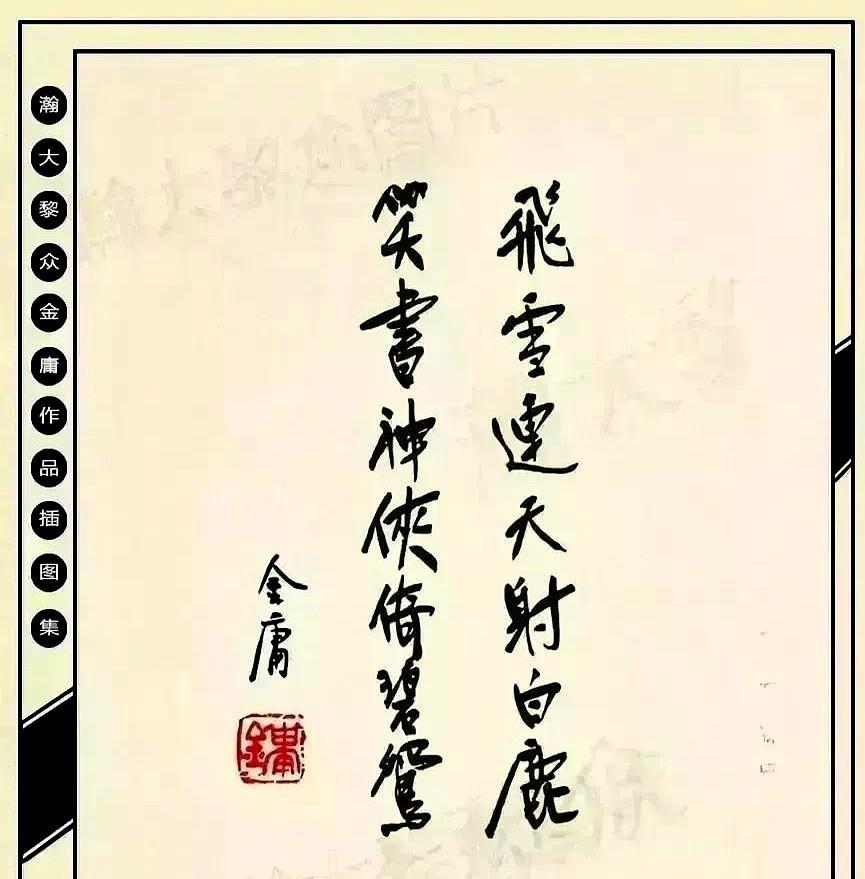 飛雪連天射白鹿
笑書神俠倚碧鴛
金庸
瀚大黎众金庸作品插图集